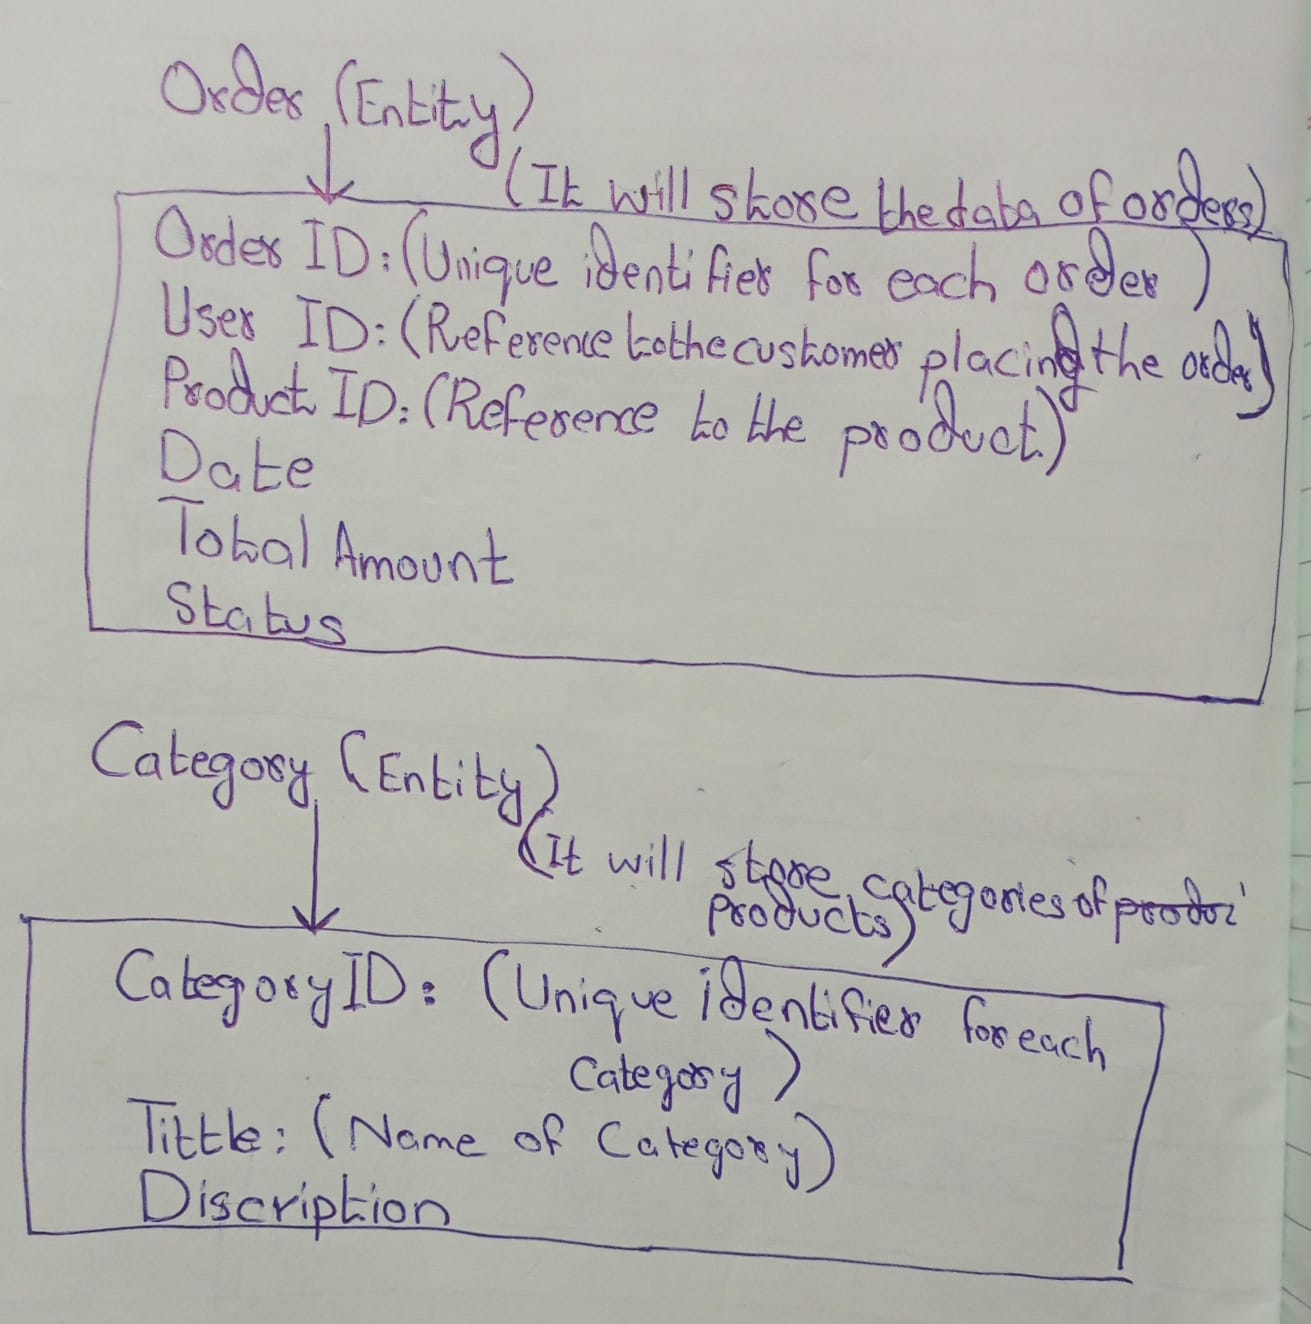 Order (Entity)
(It will store the data of orders)
Order ID: (Unique identifier for each order)
User ID: (Reference to the customer placing the order)
Product ID: (Reference to the product)
Date
Total Amount
Status
Category (Entity)
(It will store categories of
products)
Category ID: (Unique identifier for each
Category)
Tittle: (Name of Category)
Discription